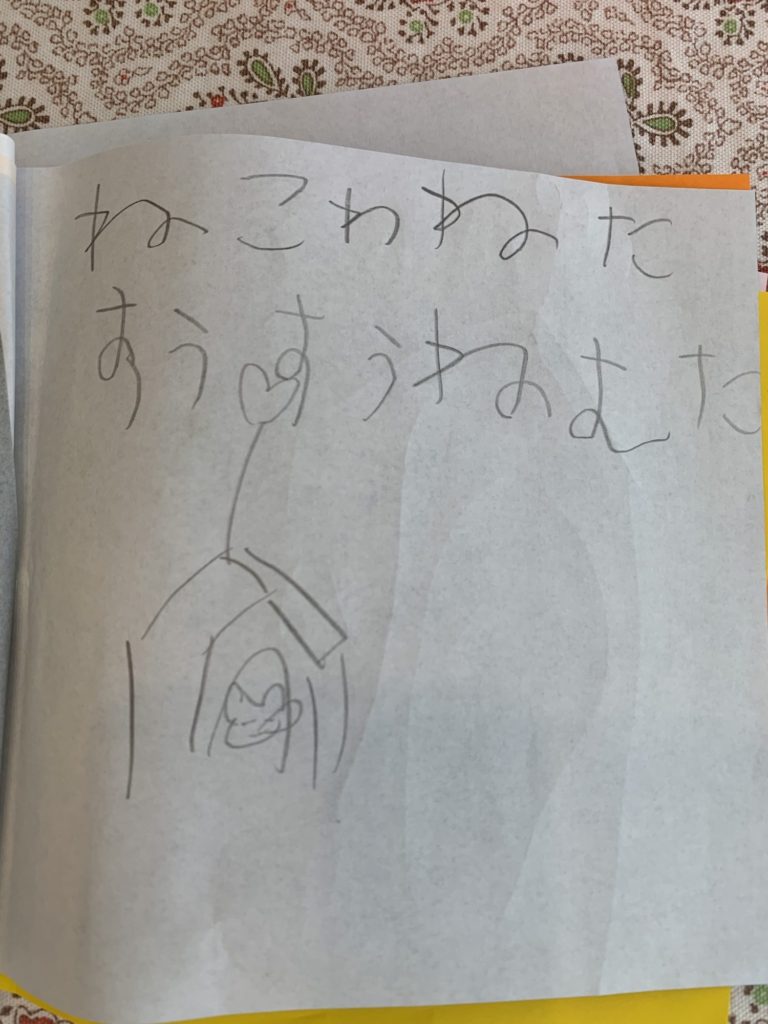 ねこわねた
すうすうねむた